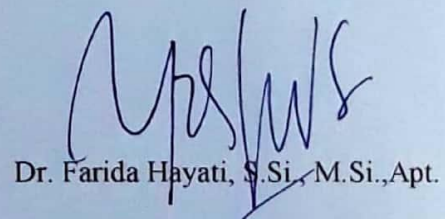 Dr. Farida Hayati, S.Si., M.Si.,Apt.